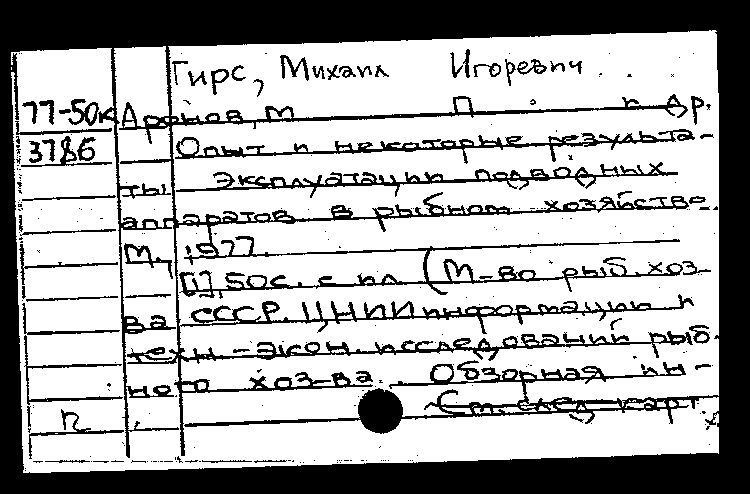 Гирс, Михаил Игоревич
77-50к Аронов, М П и др.
3786 Опыт и некоторые результа-
ты эксплуатации подводных
аппаратов в рыбном хозяйстве.
М., 1977.
[1], 50с. с ил (М-во рыб. хоз-
ва СССР. ЦНИИ информации и
техн.-экон. исследований рыб-
ного хоз-ва. Обзорная ин-
См. след. карт.